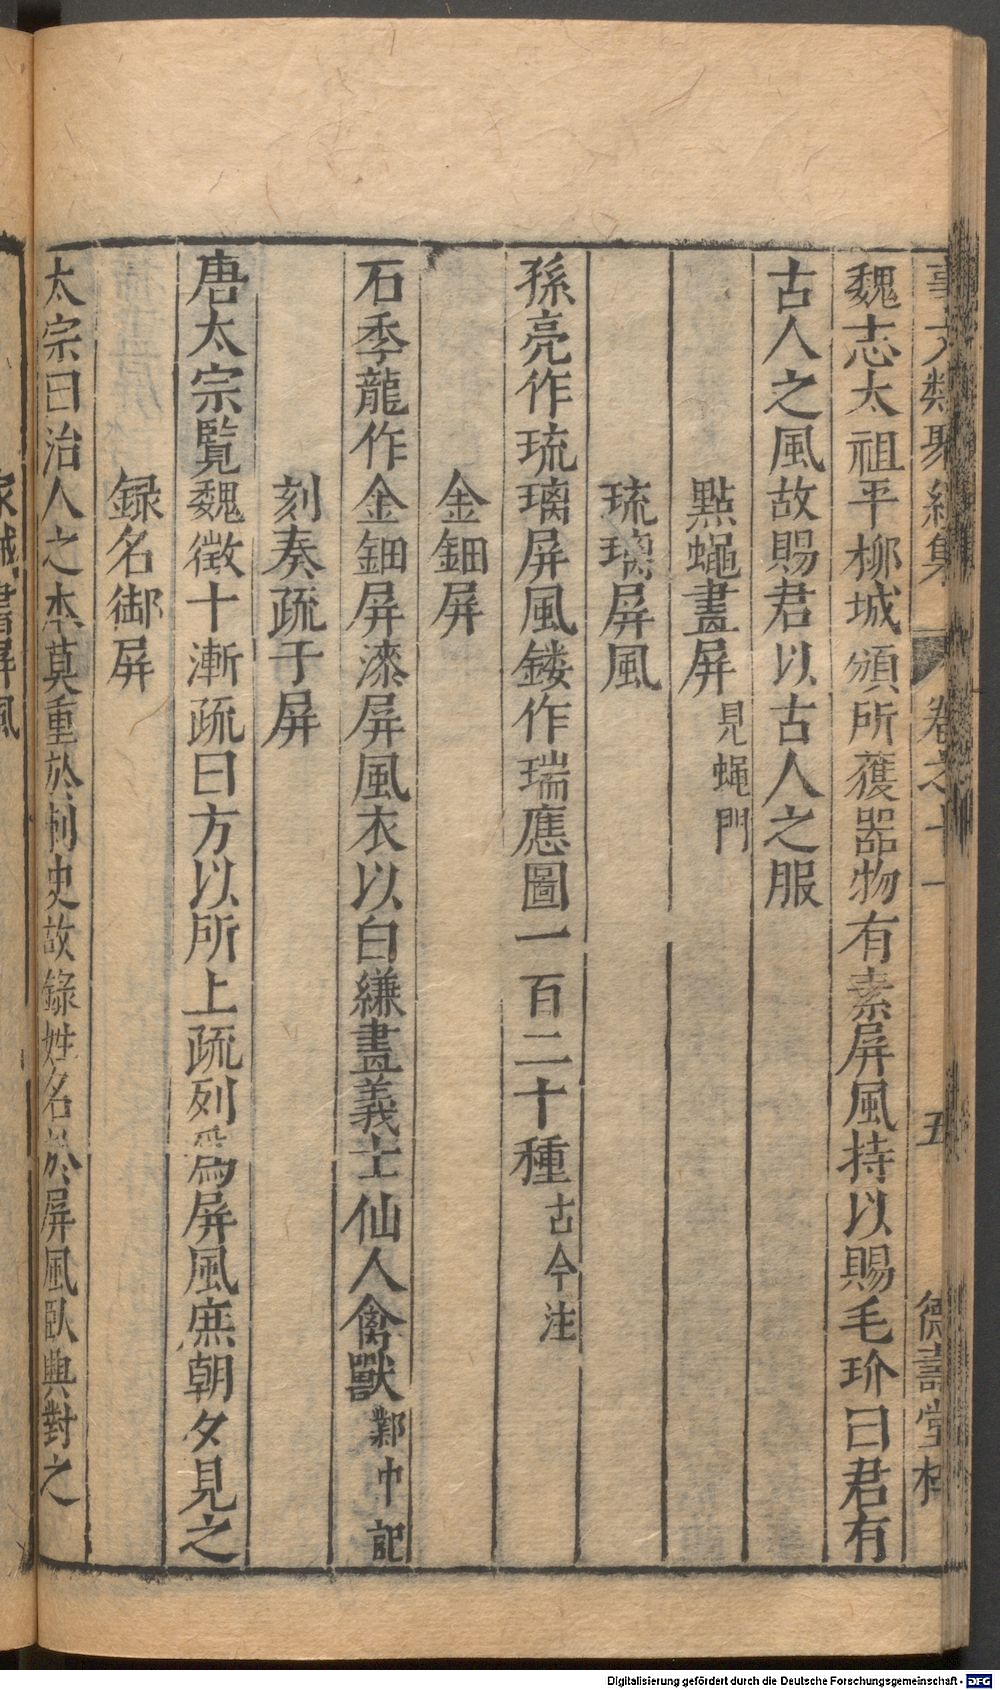 事文類聚 續集 卷之十一 五 德壽堂梓
魏志太祖平柳城頒所獲器物有素屏風持以賜毛玠曰君有
古人之風故賜君以古人之服
點蠅畫屏 見蠅門
琉璃屏風
孫亮作琉璃屏風鏤作瑞應圖一百二十種 古今注
金鈿屏
石季龍作金鈿屏漆屏風衣以白縑畫義士仙人禽獸 鄴中記
刻奏疏于屏
唐太宗覽魏徵十漸疏曰方以所上疏列爲屏風庶朝夕見之
録名御屏
太宗曰治人之本莫重於刺史故錄姓名於屏風臥興對之
書屏風
Digitalisierung gefördert durch die Deutsche Forschungsgemeinschaft - DFG